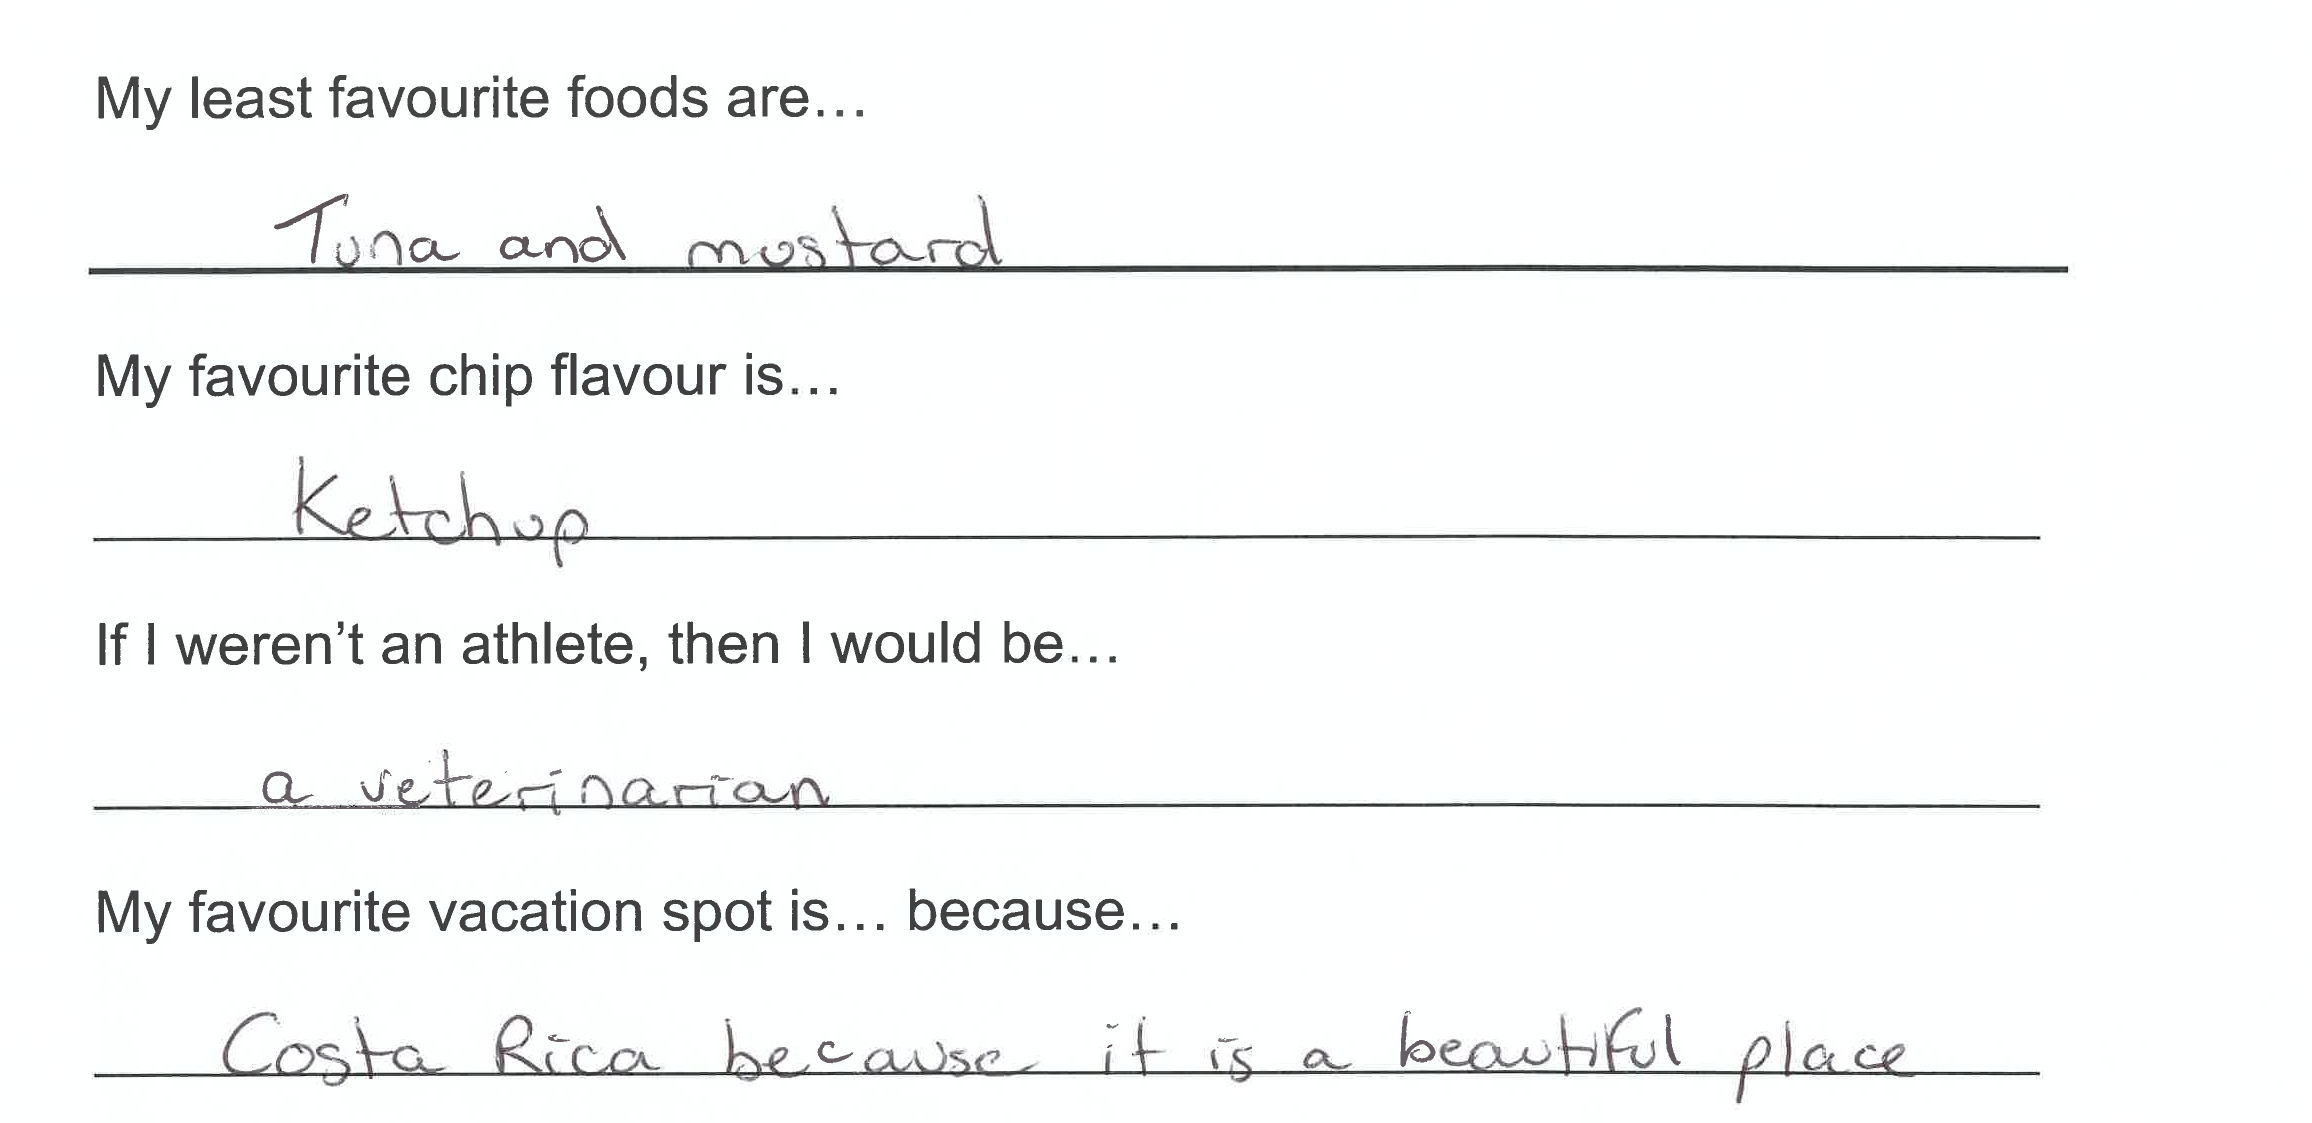 My least favourite foods are…
Tuna and mustard
My favourite chip flavour is…
Ketchup
If I weren't an athlete, then I would be…
a veterinarian
My favourite vacation spot is… because…
Costa Rica because it is a beautiful place